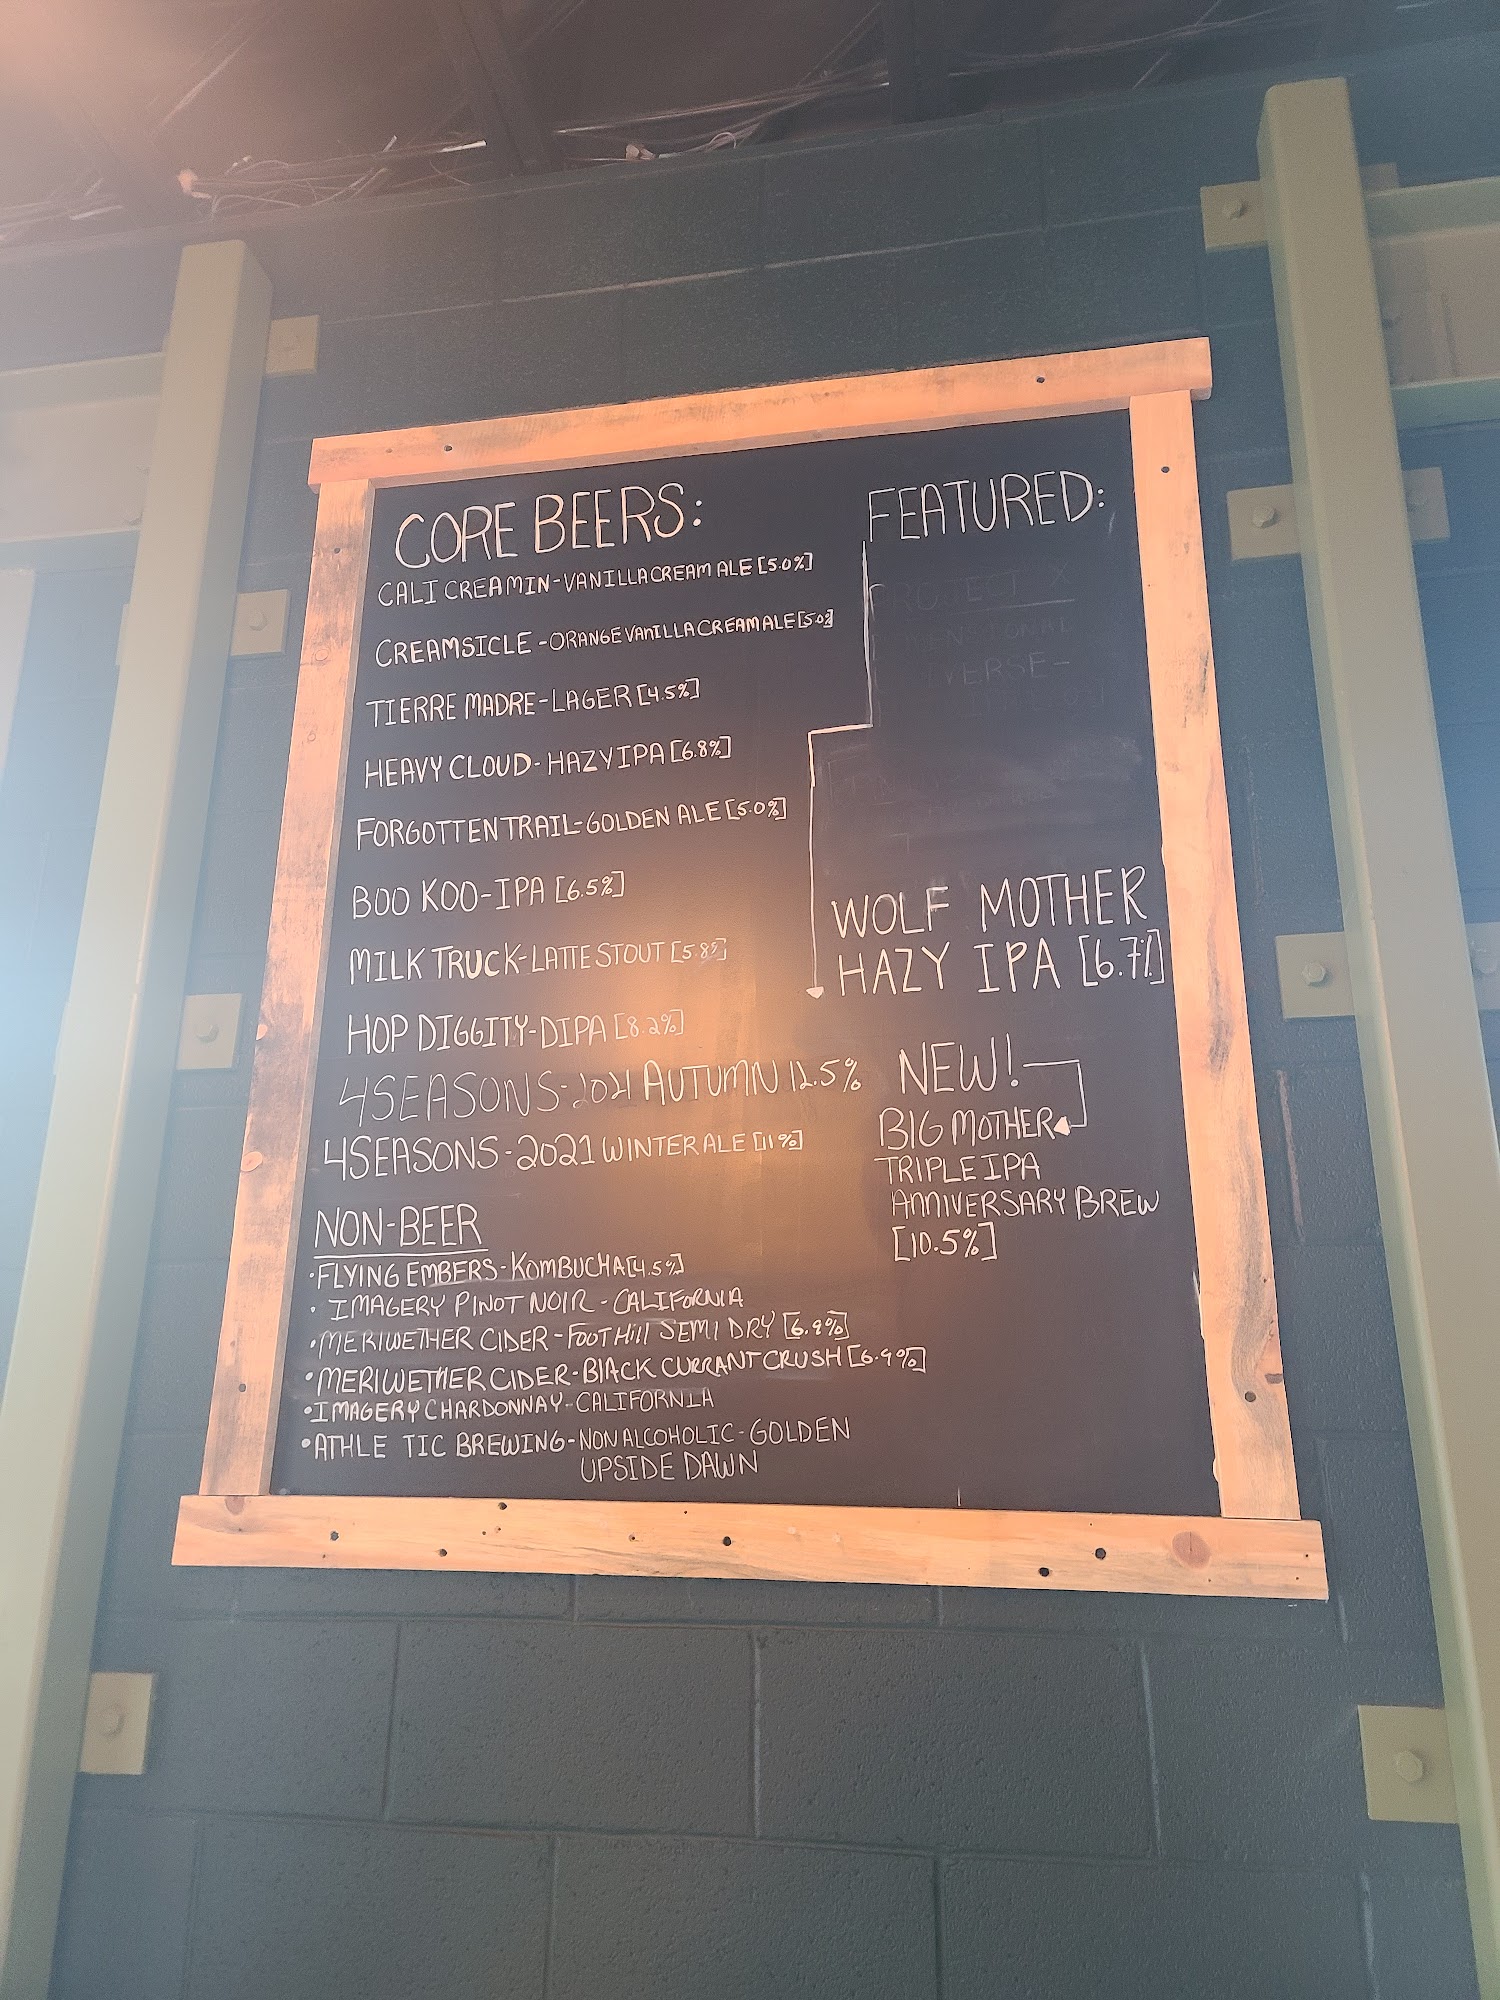 CORE BEERS:
CALI CREAMIN-VANILLA CREAM ALE [5.0%]
CREAMSICLE-ORANGE VANILLA CREAM ALE [5.0%]
TIERRE MADRE-LAGER [4.5%]
HEAVY CLOUD-HAZY IPA [6.8%]
FORGOTTEN TRAIL-GOLDEN ALE [5.0%]
BOO KOO-IPA [6.5%]
MILK TRUCK-LATTE STOUT [5.8%]
HOP DIGGITY-DIPA [8.2%]
4SEASONS-2021 AUTUMN 12.5%
4SEASONS-2021 WINTER ALE [11%]
NON-BEER
•FLYING EMBERS-KOMBUCHA [4.5%]
•IMAGERY PINOT NOIR-CALIFORNIA
•MERIWETHER CIDER-FOOTHill SEMI DRY [6.9%]
•MERIWETHER CIDER-BlACK CURRANT CRUSH [6.9%]
•IMAGERY CHARDONNAY-CALIFORNIA
•ATHLETIC BREWING-NON ALCOHOLIC-GOLDEN
UPSIDE DAWN
FEATURED:
WOLF MOTHER
HAZY IPA [6.7%]
NEW!
BIG MOTHER
TRIPLE IPA
ANNIVERSARY BREW
[10.5%]